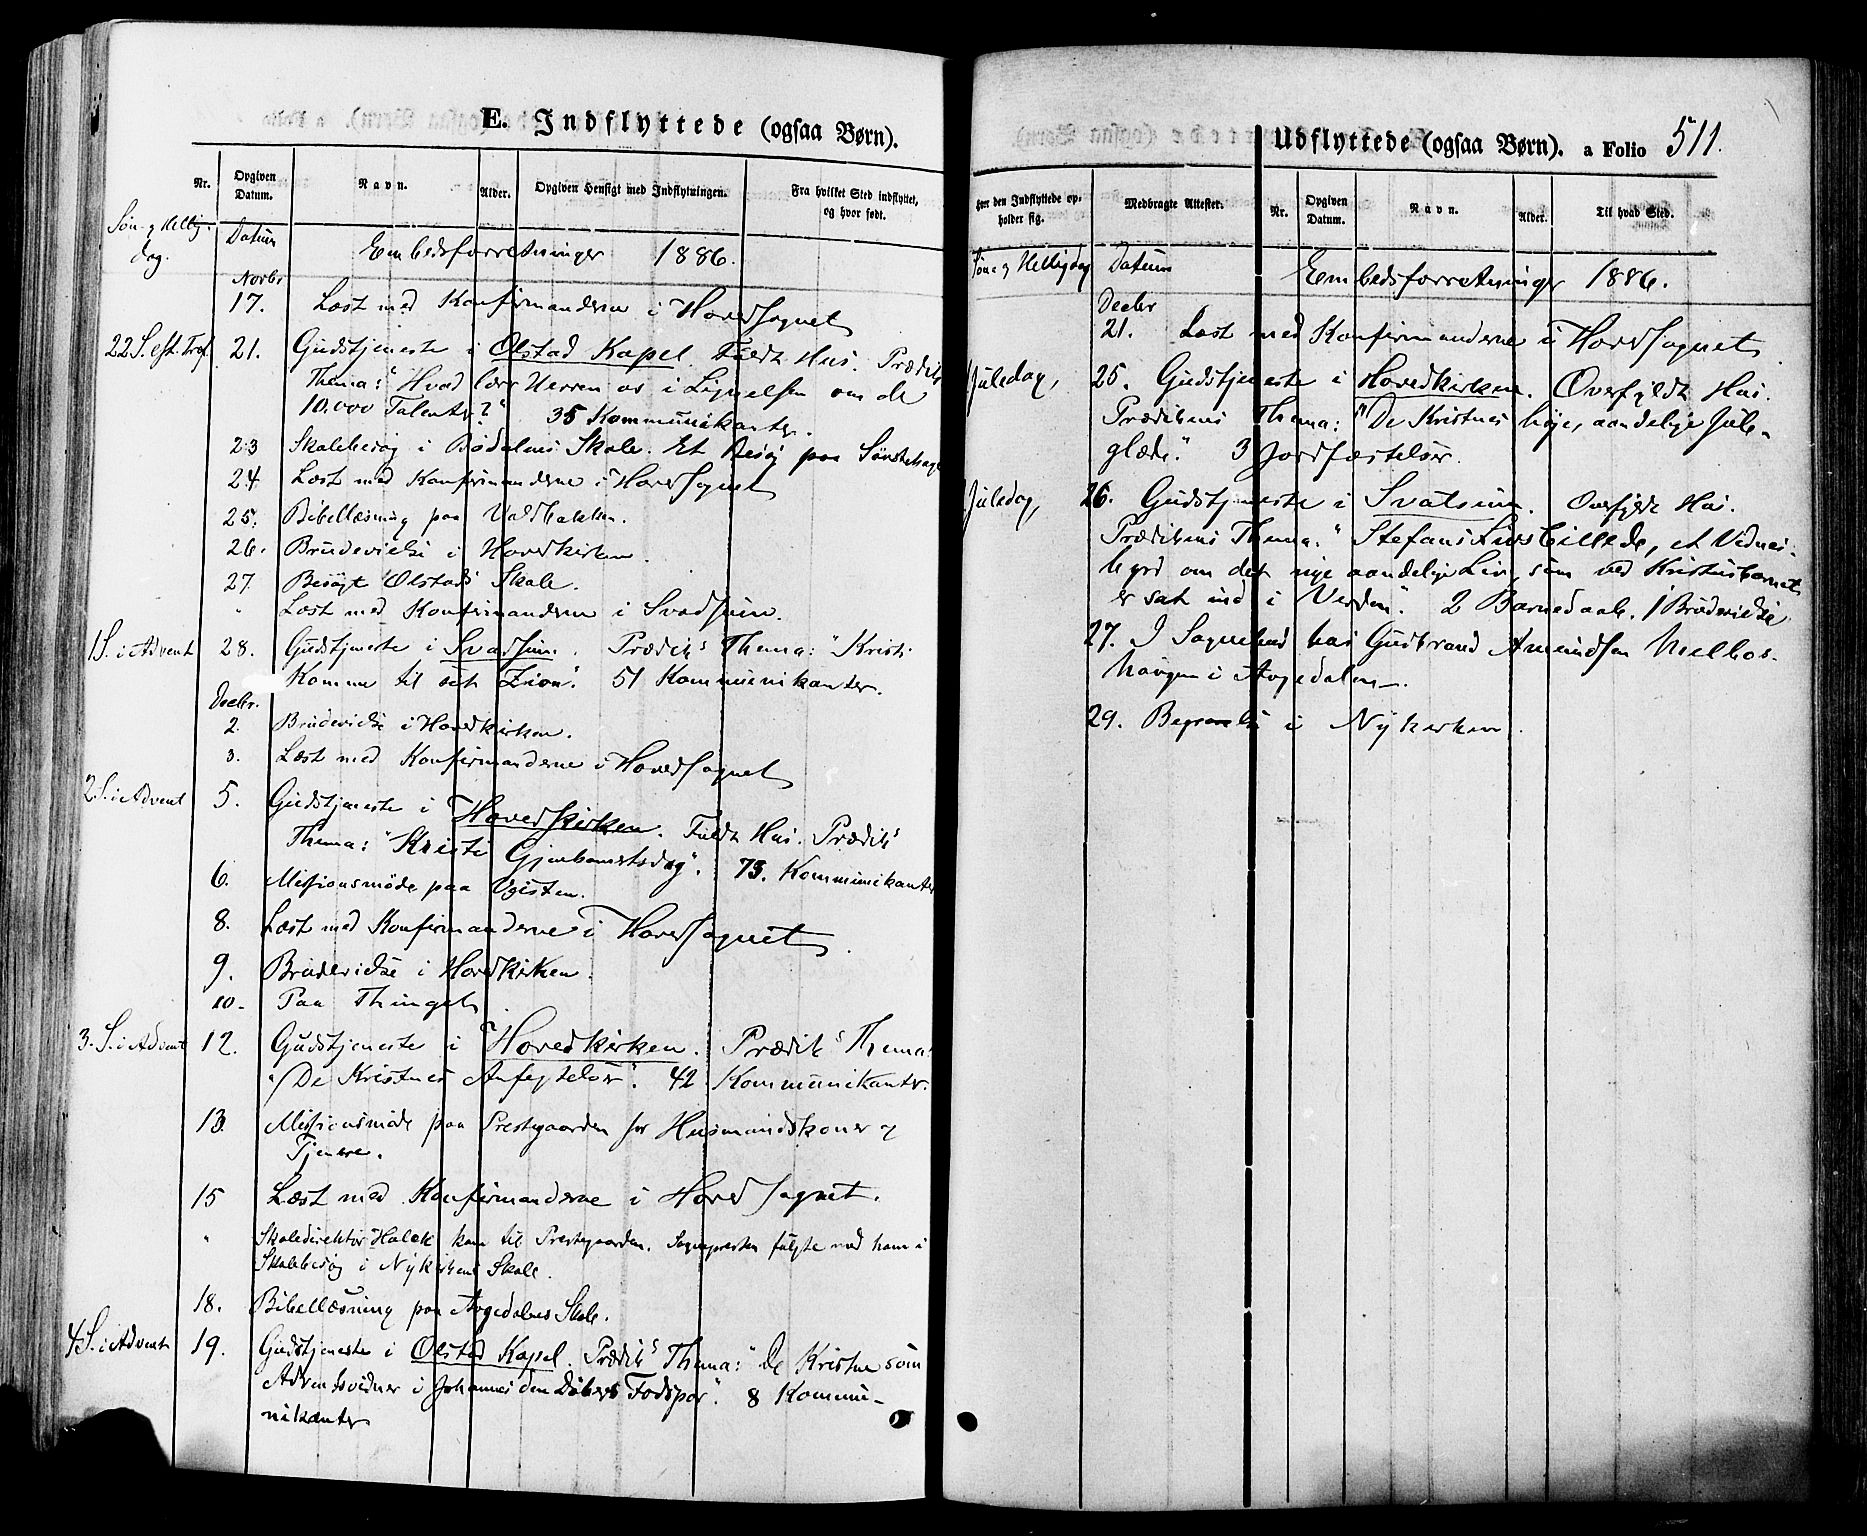 E. Indflyttede (ogsaa Børn).
Nr. Opgiven Datum. Navn. Alder. Opgiven Hensigt med Indflytningen. Fra hvilket Sted indflyttet, og hvor født.
Søn- og Hellig-dag. Datum Embedsforretninger 1886.
Novbr
17. Læst med Konfirmanderne i Hovedsognet
22 S. eft. Tref. 21. Gudstjeneste i Olstad Kapel. Fuldt Hus. Prædik's
Thema: "Hvad lærer Herren os i Lignelsen om de
10.000 Talenter?" 35 Kommunikanter.
23 Skolebesøg i Bødalens Skole. Et Besøg paa
24 Læst med Konfirmanderne i Hovedsognet
25. Bibellæsning paa Voldbakken.
26. Brudevielse i Hovedkirken.
27. Besøgt Olstads Skole.
" Læst med Konfirmanderne i Svadsum.
1 S. i Advent 28. Gudstjeneste i Svadsum. Prædik's Thema: "Kristi
Komme til sit Zion." 51 Kommunikanter.
Decbr.
2. Brudevielse i Hovedkirken.
3. Læst med Konfirmanderne i Hovedsognet
2 S. i Advent 5. Gudstjeneste i Hovedkirken. Fuldt Hus. Prædik's
Thema: "Kristi Gjenkomstsdag". 73. Kommunikanter
6. Missionsmøde paa
8. Læst med Konfirmanderne i Hovedsognet.
9. Brudevielse i Hovedkirken.
10. Paa Thinget.
3. S. i Advent 12. Gudstjeneste i Hovedkirken. Prædik's Thema:
"De Kristnes Anfegtelser". 42 Kommunikanter.
13. Missionsmøde paa Prestegaarden for Husmandskoner og
Tjenere.
15 Læst med Konfirmanderne i Hovedsognet.
" Skoledirektør kom til Prestegaarden. Sognepresten fulgte med ham i
Skolebesøg i Nykirkens Skole.
18. Bibellæsning paa Aagedalens Skole.
4 S. i Advent 19. Gudstjeneste i Olstad Kapel. Prædik's Thema: "De Kristne som
Adventsvidner i Johannes den Døbers Fodspor". 8 Kommu-
nikanter
Udflyttede (ogsaa Børn). a Folio 511.
Hvor den Indflyttede opholder sig. Medbragte Attester. Nr. Opgiven Datum. Navn. Alder. Til hvad Sted.
Søn og Helligdag Datum Embedsforretninger 1886.
Decbr
21. Læst med Konfirmanderne i Hovedsognet
Juledag, 25. Gudstjeneste i Hovedkirken. Overfyldt Hus.
Prædikens Thema: "De Kristnes høje, aandelige Jule-
glæde." 3 Jordfæstelser.
Juledag, 26. Gudstjeneste i Svatsum. Overfyldt Hus.
Prædikens Thema: "Stefans Livsbillede, et Vidnes-
byrd om det nye aandelige Liv, som ved Kristusbarnet
er sat ind i Verden". 2 Barnedaab. 1 Brudevielse
27. I Sognebud hos Gudbrand Amundsen
haugen i Aagedalen.
29. Begravelse i Nykirken.